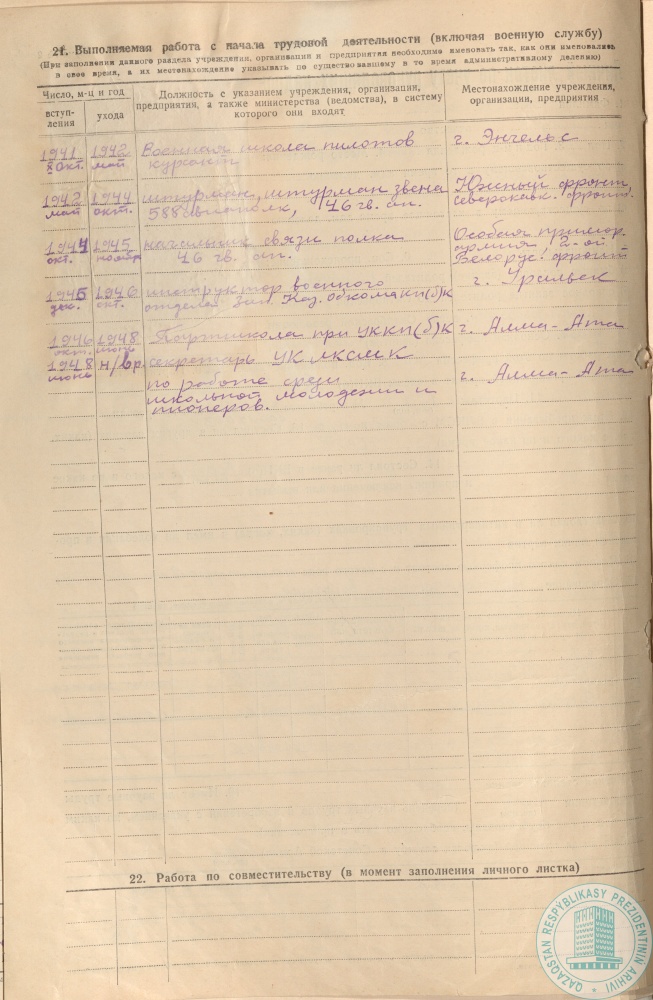 21. Выполняемая работа с начала трудовой деятельности (включая военную службу)
(При заполнении данного раздела учреждения, организации и предприятия необходимо именовать так, как они именовались
в свое время, а их местонахождение указывать по существовавшему в то время административному делению)
Число, м-ц и год
вступ-
ления
ухода
Должность с указанием учреждения, организации,
предприятия, а также министерства (ведомства), в систему
которого они входят
Местонахождение учреждения,
организации, предприятия
1941 1942 Военная школа пилотов г. Энгельс
окт. май курсант
1942 1944 штурман, штурман звена Южный фронт,
май окт. 588 авиаполк, 46 гв. ап. северокавк. фронт.
1944 1945 начальник связи полка Особая примор.
окт. 46 гв. ап. армия, 2-ой
Белорус. фронт
1945 1946 инструктор военного г. Уральск
дек. окт. отдела Зап. Каз. обкома кп(б)К
1946 1948 Партшкола при ЦККП(б)К г. Алма-Ата
окт. июнь
1948 н/вр. секретарь ЦК ЛКСМК
июнь по работе среди г. Алма-Ата
школьной молодежи и
пионеров.
22. Работа по совместительству (в момент заполнения личного листка)
QAZAQSTAN RESPYBLIKASY PREZIDENTININ ARHIVI